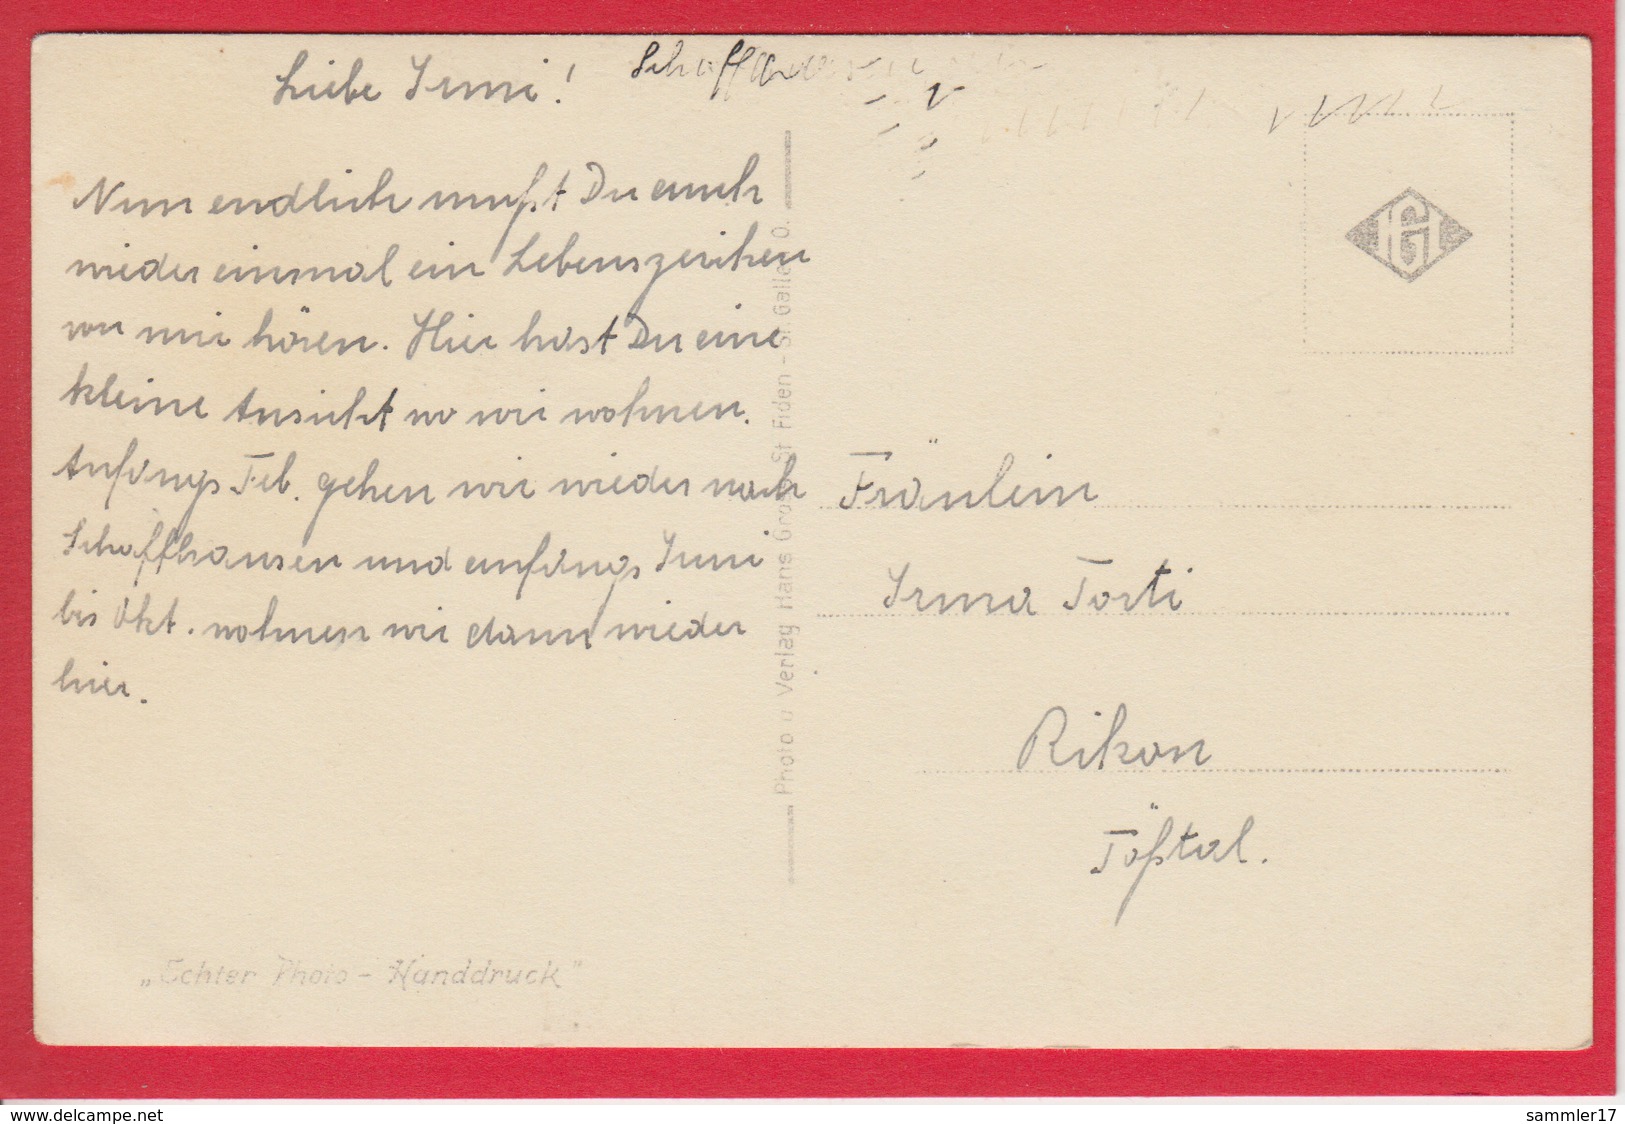 Liebe Irmi!
Nun endlich mußt Du auch
wieder einmal ein Lebenszeichen
von mir hören. Hier hast Du eine
kleine Ansicht wo wir wohnen.
Anfangs Feb. gehen wir wieder nach
Schaffhausen und anfangs Juni
bis Okt. wohnen wir dann wieder
hier.
Schaffhausen
Photo u Verlag Hans Gross, St Fiden - St. Gallen O.
HG
Fräulein
Irma Torti
Rikon
Tößtal.
„Echter Photo - Handdruck"
www.delcampe.net
sammler17